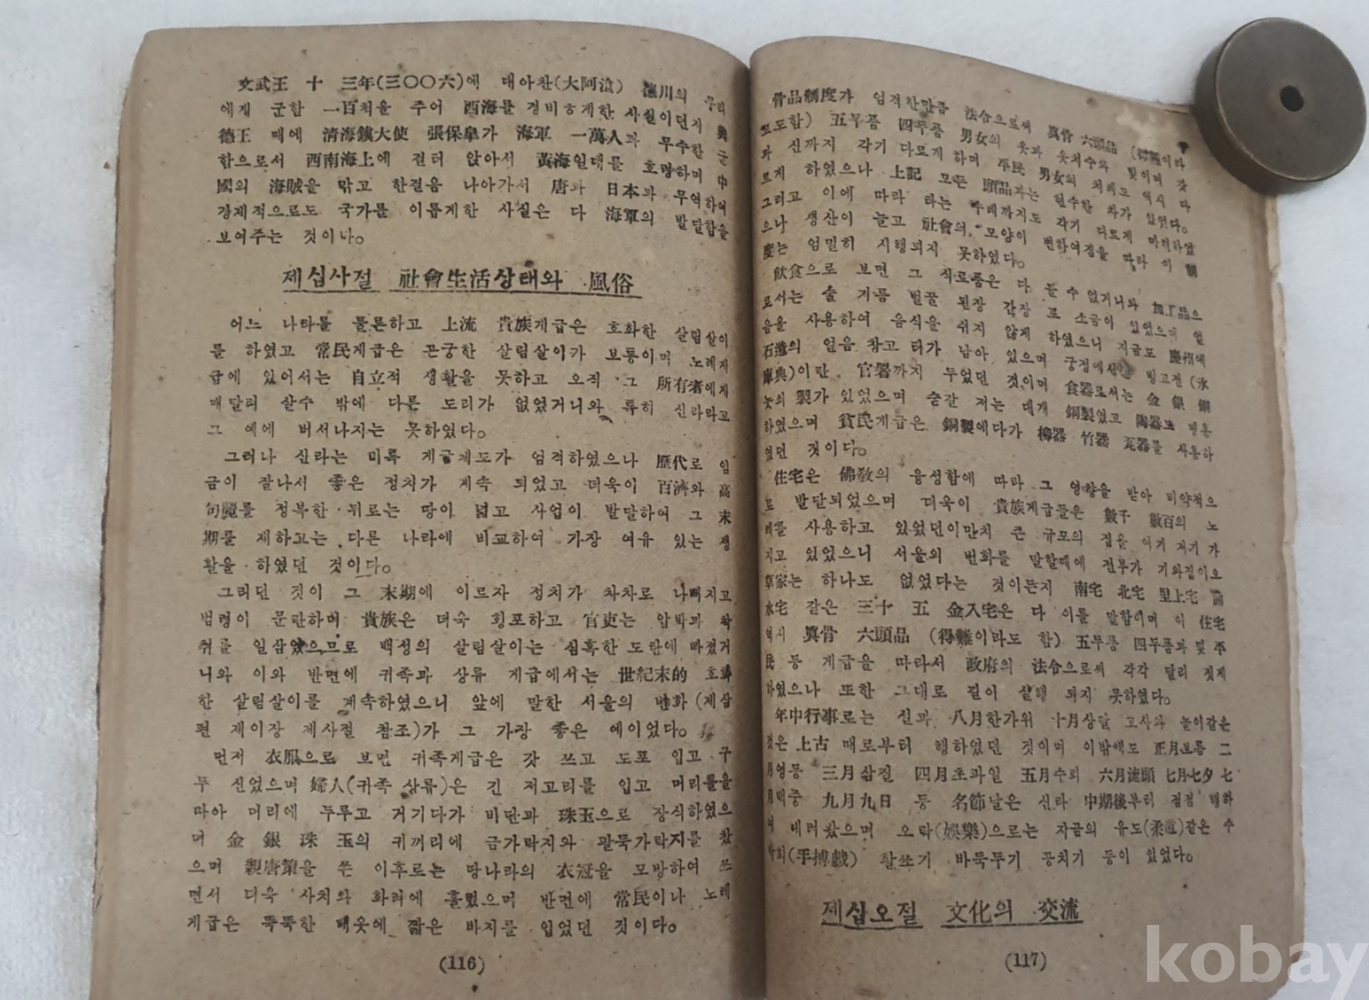 文武王 十 三年(三〇〇六)에 대아찬(大阿飡) 德川의
에게 군함 一百척을 주어 西海를 경비하게한 사실이던지
德王 때에 清海鎭大使 張保皐가 海軍 一萬人과 무수한 군
함으로서 西南海上에 걸터 앉아서 黃海일대를 호령하며 中
國의 海賊을 막고 한걸음 나아가서 唐과 日本과 무역하여
경제적으로도 국가를 이롭게한 사실은 다 海軍의 발달함을
보여주는 것이다。
제십사절 社會生活상태와 風俗
어느 나라를 물론하고 上流 貴族게급은 호화한 살림살이
를 하였고 常民게급은 곤궁한 살림살이가 보통이며 노레게
급에 있어서는 自立적 생활을 못하고 오직 그 所有者에게
매달려 살수 밖에 다른 도리가 없었거니와 특히 신라라고
그 예에 버서나지는 못하였다。
그러나 신라는 비록 게급제도가 엄격하였으나 歷代로 임
금이 잘나서 좋은 정치가 게속 되었고 더욱이 百濟와 高
句麗를 정복한 뒤로는 땅이 넓고 사업이 발달하여 그 末
期를 제하고는 다른 나라에 비교하여 가장 여유 있는 생
활을 하였던 것이다。
그러던 것이 그 末期에 이르자 정치가 차차로 나빠지고
법령이 문란하며 貴族은 더욱 횡포하고 官吏는 압박과 착
취를 일삼았으므로 백성의 살림살이는 심혹한 도탄에 빠졌거
니와 이와 반면에 귀족과 상류 게급에서는 世紀末的 호화
한 살림살이를 게속하였으니 앞에 말한 서울의 번화(제삼
편 제이장 제사절 참조)가 그 가장 좋은 예이었다。
먼저 衣服으로 보면 귀족게급은 갓 쓰고 도포 입고 구
두 신었으며 婦人(귀족 상류)은 긴 저고리를 입고 머리를
따아 머리에 두루고 거기다가 비단과 珠玉으로 장식하였으
며 金 銀 珠 玉의 귀꺼리에 금가락지와 팔뚝가락지를 찼
으며 親唐策을 쓴 이후로는 당나라의 衣冠을 모방하여 쓰
면서 더욱 사치와 화려에 흘렀으며 반면에 常民이나 노레
게급은 뚝뚝한 베옷에 짧은 바지를 입었던 것이다。
(116)
骨品制度가 엄격한만큼 法令으로써 眞骨 六頭品 (得難이라
고도함) 五두품 四두품 男女의 옷과 옷치수와 빛이며 갓
과 신까지 각기 다르게 하며 平民 男女의 처레도 역시 다
르게 하였으나 上記 모든 頭品과는 현수한 차가 있었다。
그리고 이에 따라 타는 수레까지도 각기 다르게 마련하였
으나 생산이 늘고 社會의 모양이 변하여짐을 따라 이 制
度는 엄밀히 시행되지 못하였다。
飮食으로 보면 그 식료품은 다 들 수 없거니와 加工品으
로서는 술 기름 벌꿀 된장 간장 포 소금이 있었으며 얼
음을 사용하여 음식을 쉬지 않게 하였으니 지금도 慶州에
石造의 얼음 창고 터가 남아 있으며 궁정에서는 빙고전(氷
庫典)이란 官署까지 두었던 것이며 食器로서는 金 銀 銅
놋쇠 製가 있었으며 숟갈 저는 대개 銅製였고 陶器도 병용
하였으며 貧民게급은 銅製에다가 柳器 竹器 瓦器를 사용하
였던 것이다。
住宅은 佛敎의 융성함에 따라 그 영향을 받아 비약적으
로 발달되었으며 더욱이 貴族게급들은 數千 數百의 노
레를 사용하고 있었던이만치 큰 규모의 집을 여기 저기 가
지고 있었으니 서울의 번화를 말할때에 전부가 기와집이오
草家는 하나도 없었다는 것이든지 南宅 北宅 里上宅
水宅 같은 三十 五 金入宅은 다 이를 말함이며 이 住宅
역시 眞骨 六頭品 (得難이라도 함) 五두품 四두품과 및 平
民 등 게급을 따라서 政府의 法令으로써 각각 달리 짓게
하였으나 또한 그대로 길이 실행 되지 못하였다。
年中行事로는 설과 八月한가위 十月상달 고사와 놀이같은
것은 上古 때로부터 행하였던 것이며 이밖에도 正月보름 二
月영등 三月삼질 四月초파일 五月수릐 六月流頭 七月七夕 七
月백중 九月九日 등 名節날은 신라 中期後부터 점점
며 내려왔으며 오락(娛樂)으로는 지금의 유도(柔道)같은 수
박희(手搏戱) 활쏘기 바둑두기 공치기 등이 있었다。
제십오절 文化의 交流
(117)
kobay